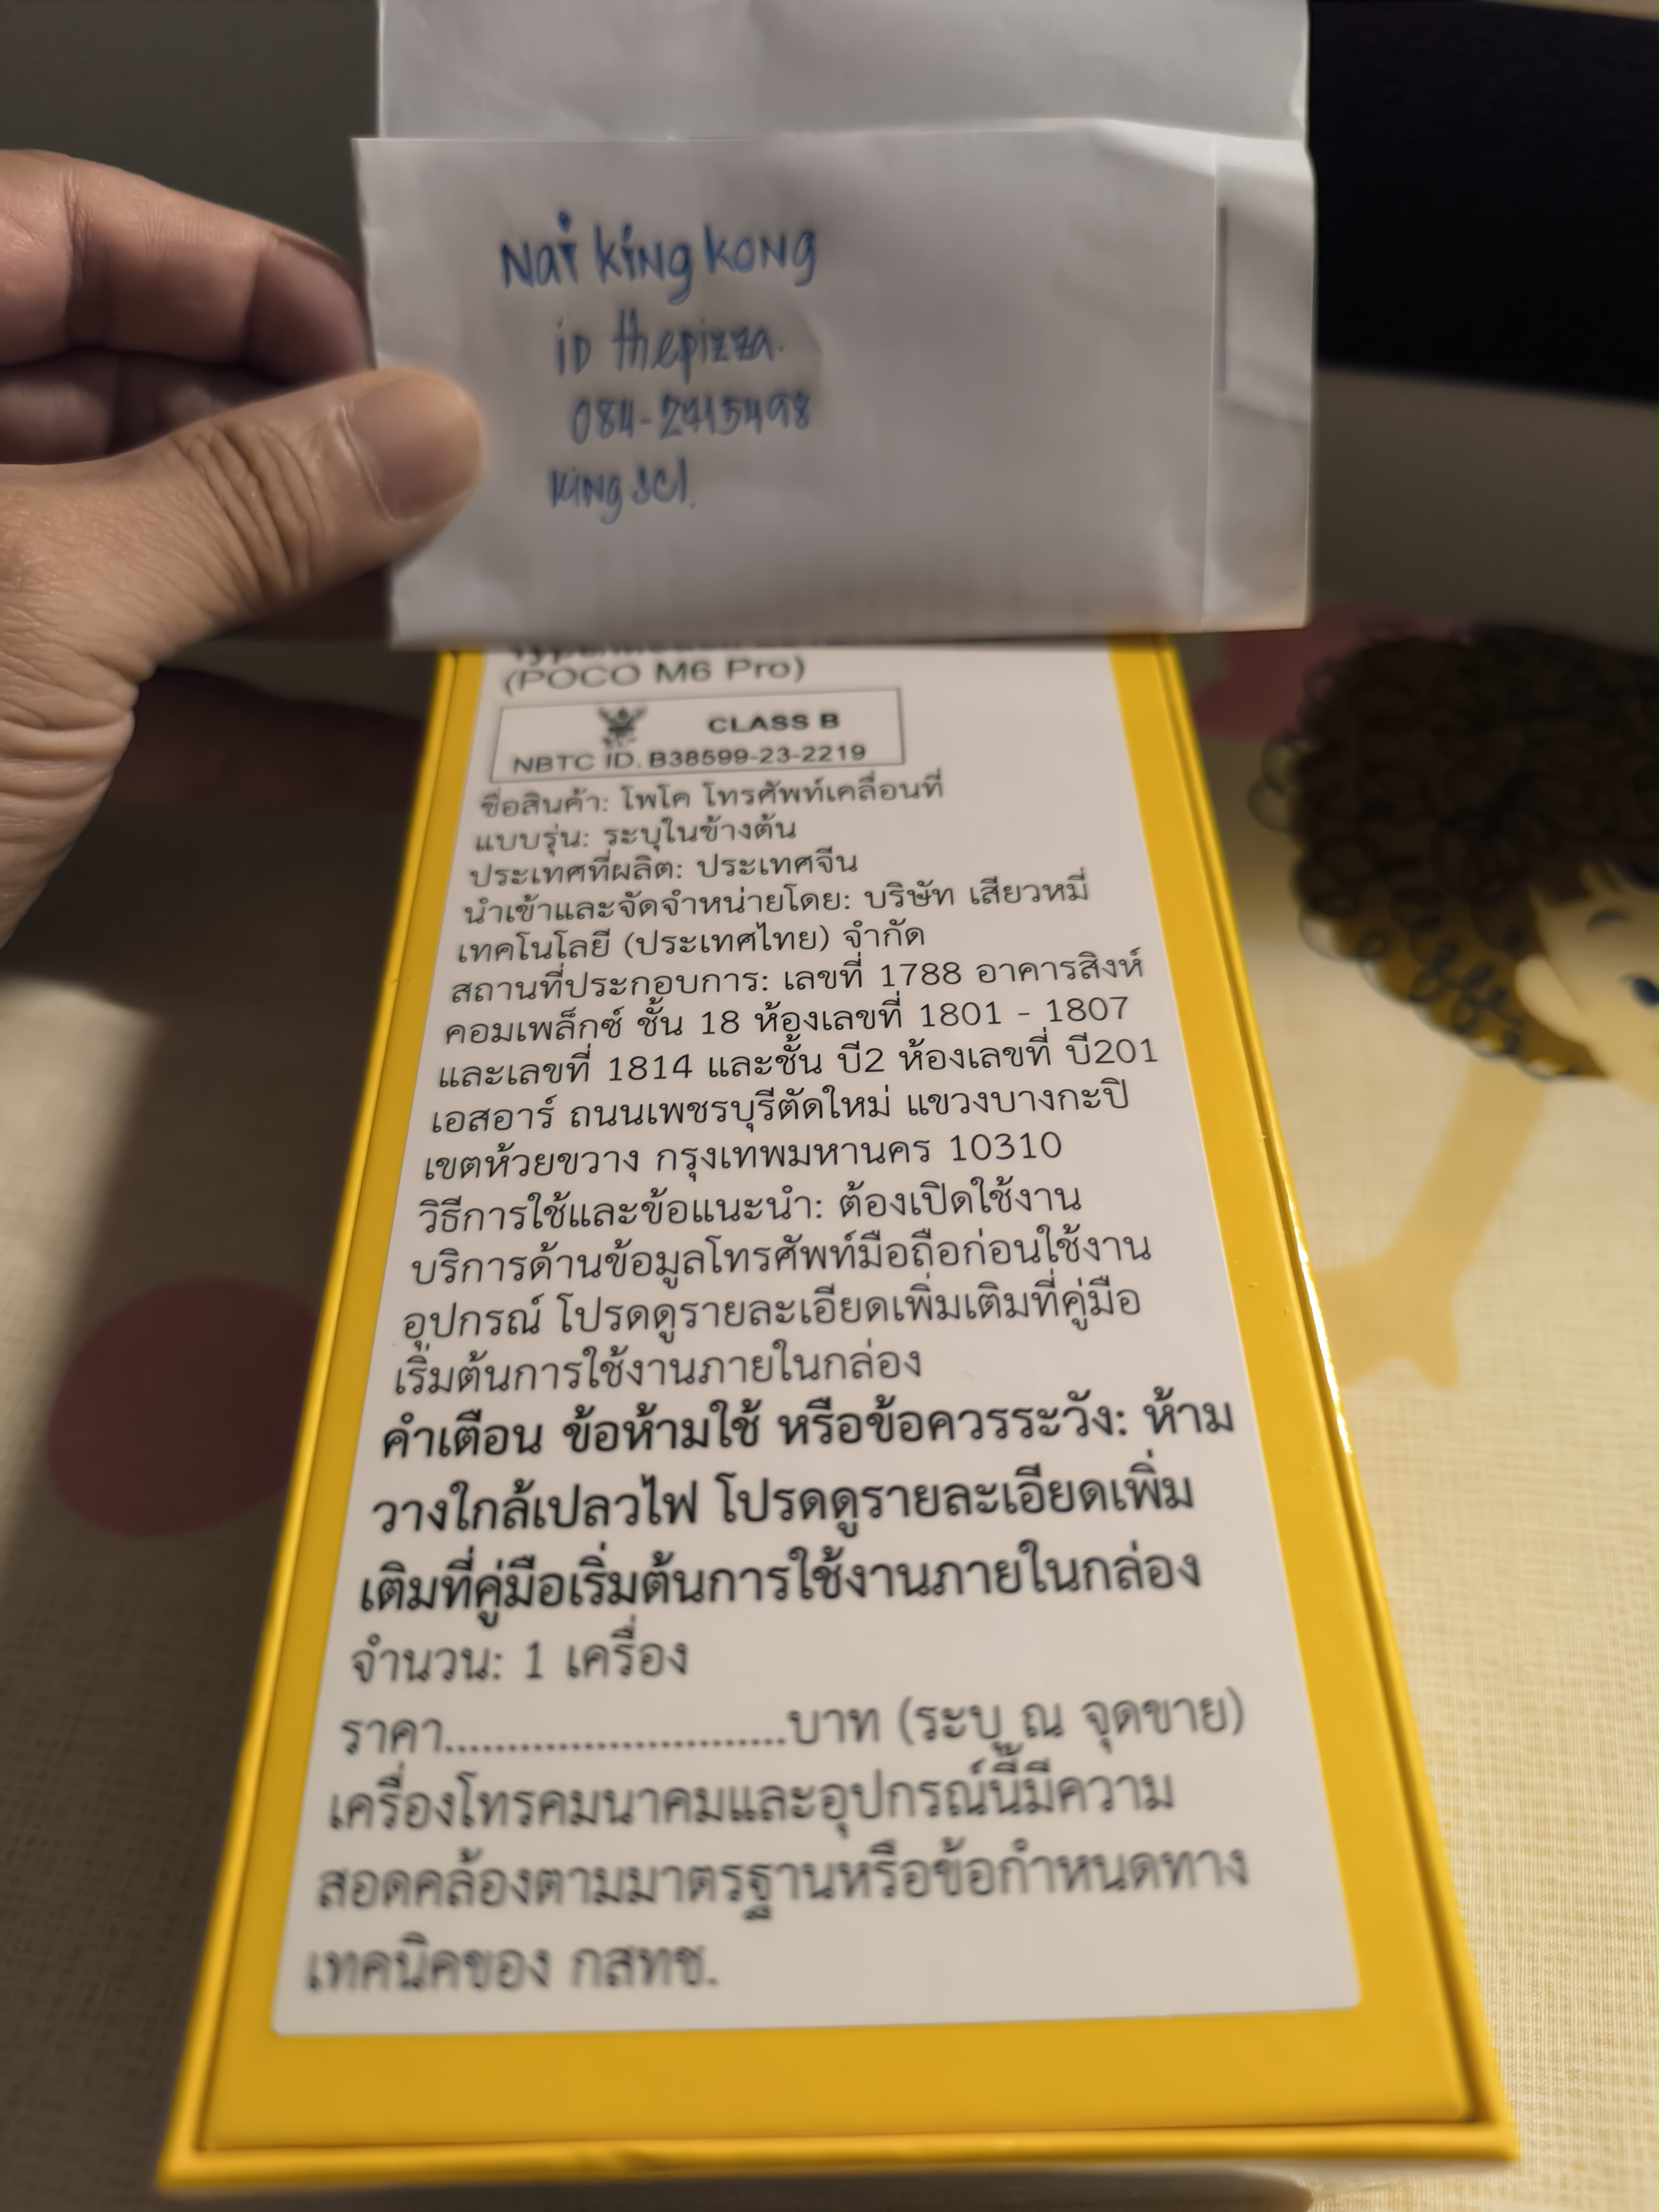 Nai king kong
iD thepizza.
084-2715498
King scl.
(POCO M6 Pro)
CLASS B
NBTC ID. B38599-23-2219
ชื่อสินค้า: โพโค โทรศัพท์เคลื่อนที่
แบบรุ่น: ระบุในข้างต้น
ประเทศที่ผลิต: ประเทศจีน
นำเข้าและจัดจำหน่ายโดย: บริษัท เสียวหมี่
เทคโนโลยี (ประเทศไทย) จำกัด
สถานที่ประกอบการ: เลขที่ 1788 อาคารสิงห์
คอมเพล็กซ์ ชั้น 18 ห้องเลขที่ 1801 - 1807
และเลขที่ 1814 และชั้น บี2 ห้องเลขที่ บี201
เอสอาร์ ถนนเพชรบุรีตัดใหม่ แขวงบางกะปิ
เขตห้วยขวาง กรุงเทพมหานคร 10310
วิธีการใช้และข้อแนะนำ: ต้องเปิดใช้งาน
บริการด้านข้อมูลโทรศัพท์มือถือก่อนใช้งาน
อุปกรณ์ โปรดดูรายละเอียดเพิ่มเติมที่คู่มือ
เริ่มต้นการใช้งานภายในกล่อง
คำเตือน ข้อห้ามใช้ หรือข้อควรระวัง: ห้าม
วางใกล้เปลวไฟ โปรดดูรายละเอียดเพิ่ม
เติมที่คู่มือเริ่มต้นการใช้งานภายในกล่อง
จำนวน: 1 เครื่อง
ราคา...........................บาท (ระบุ ณ จุดขาย)
เครื่องโทรคมนาคมและอุปกรณ์นี้มีความ
สอดคล้องตามมาตรฐานหรือข้อกำหนดทาง
เทคนิคของ กสทช.